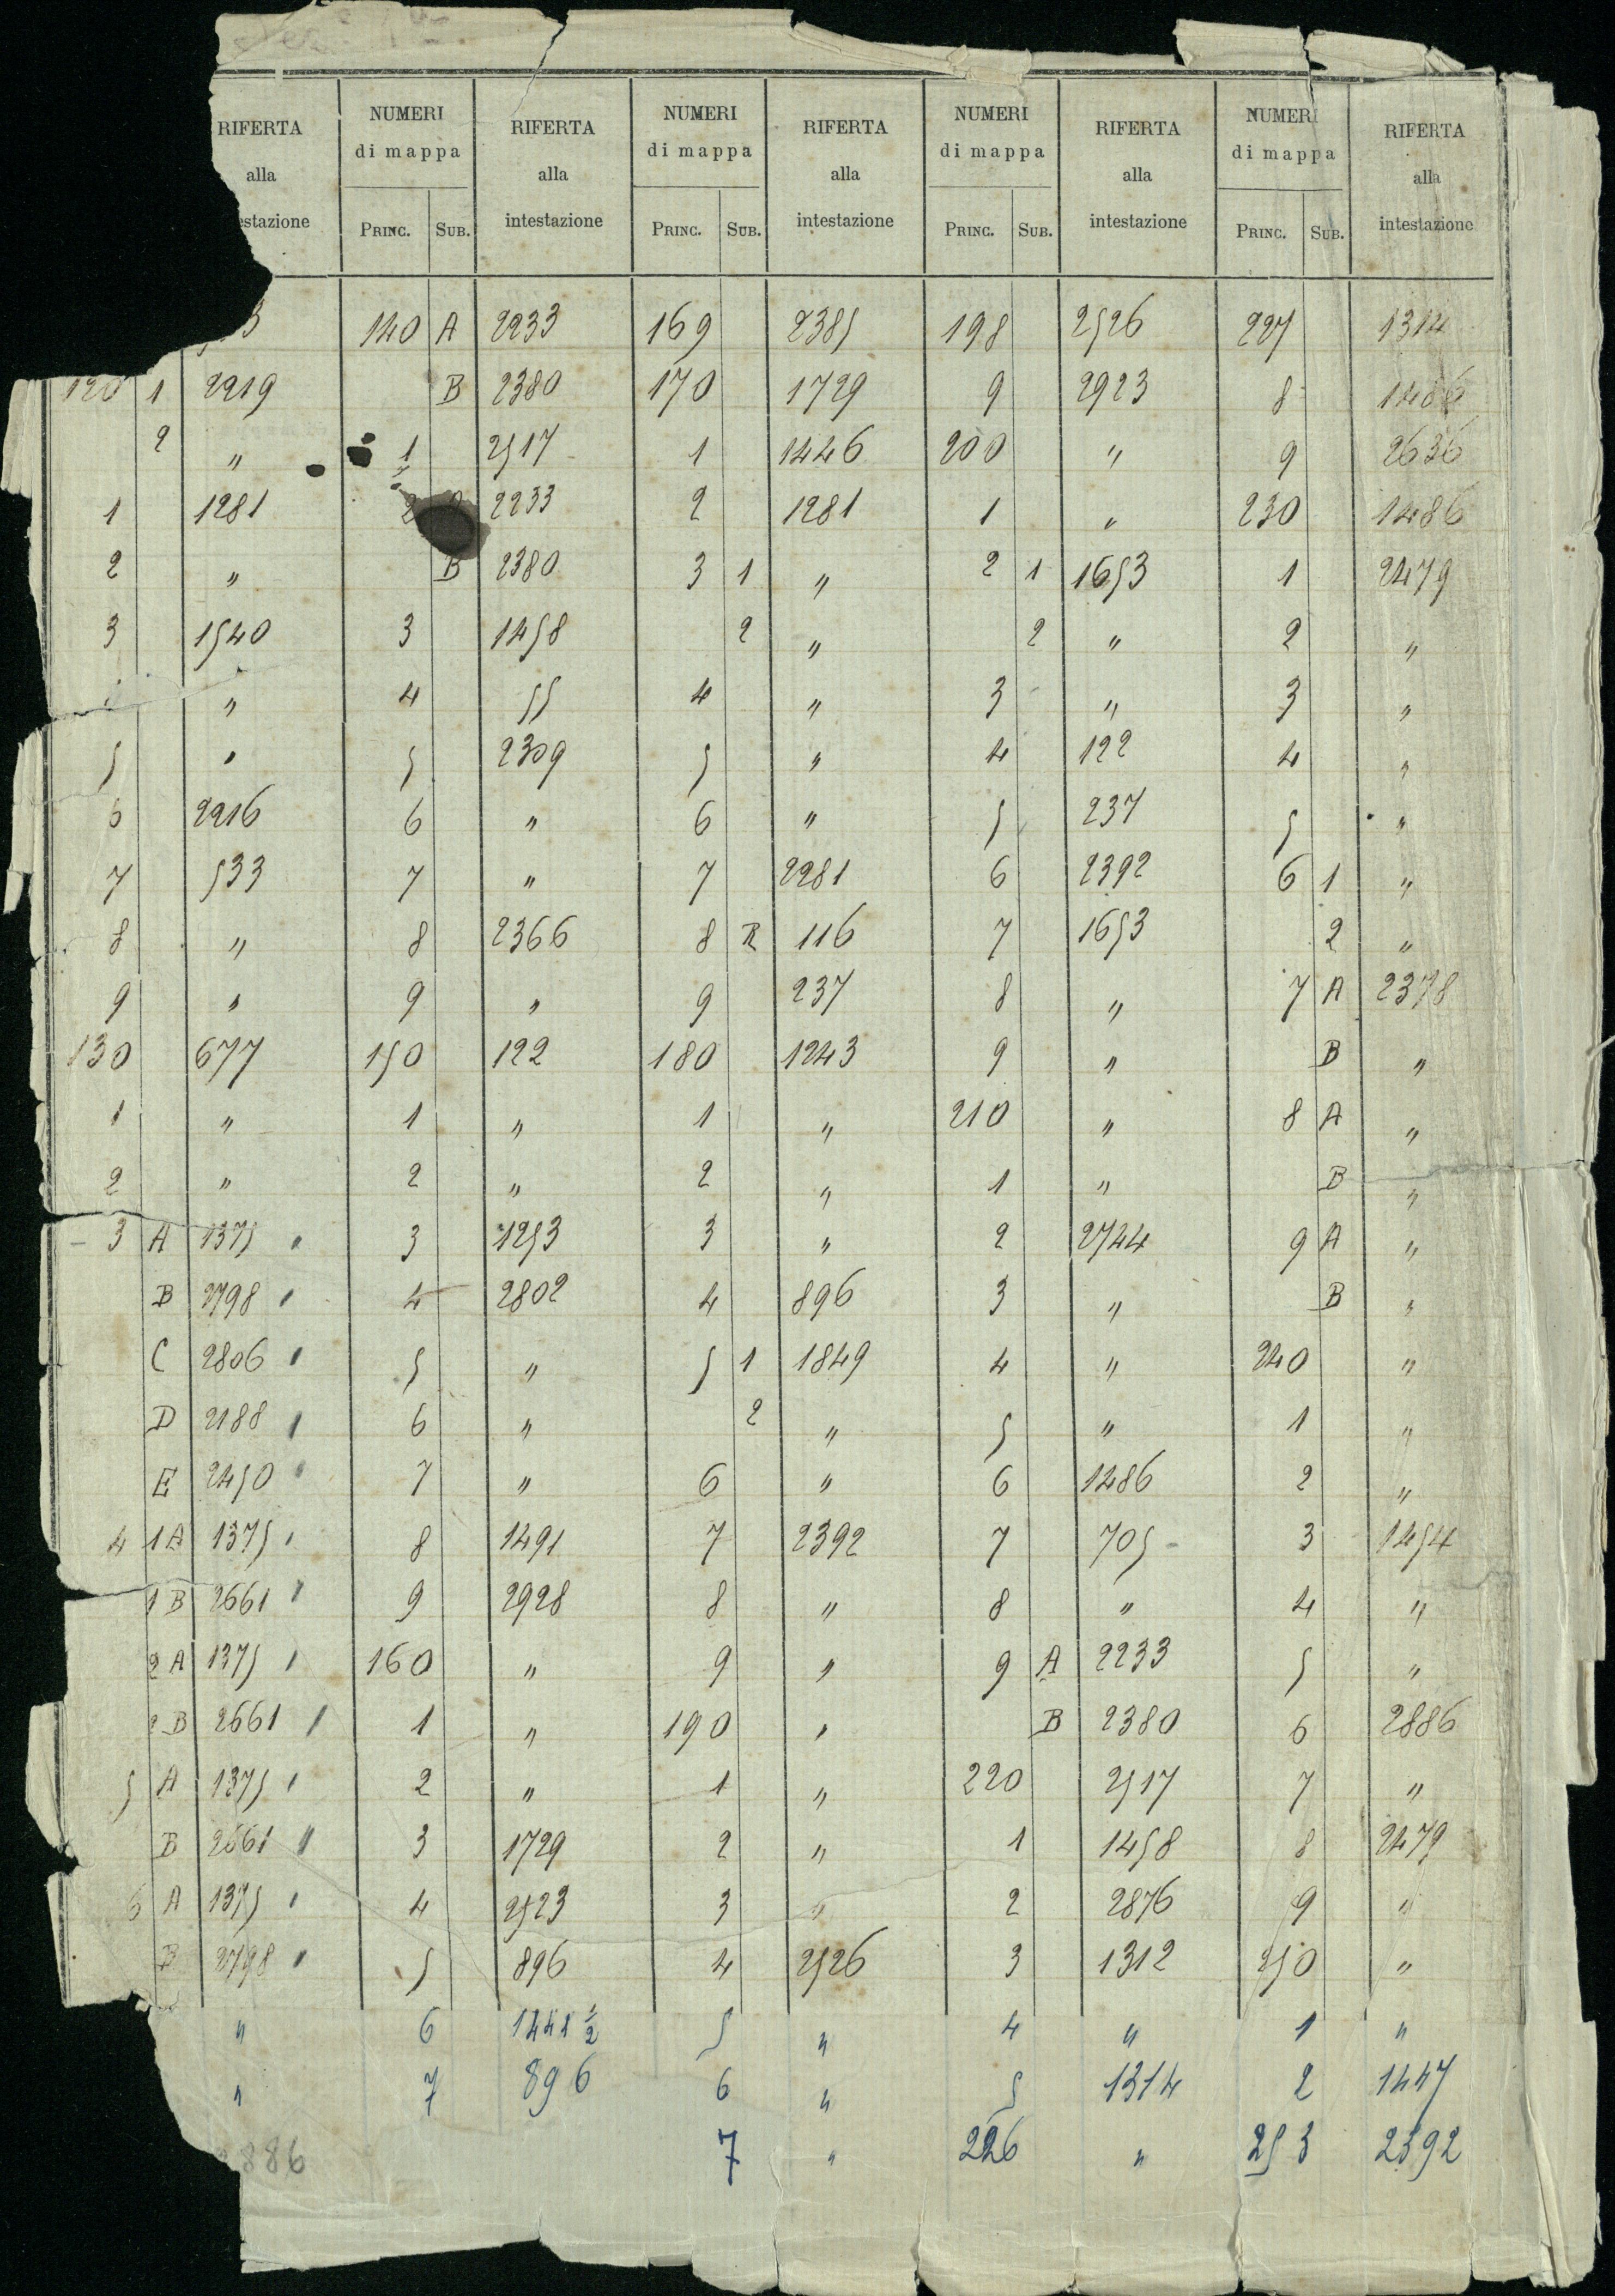 RIFERTA NUMERI RIFERTA NUMERI RIFERTA NUMERI RIFERTA NUMERI RIFERTA
alla di mappa alla di mappa alla di mappa alla di mappa alla
estazione PRINC. SUB. intestazione PRINC. SUB. intestazione PRINC. SUB. intestazione PRINC. SUB. intestazione
3 140 A 2233 169 2385 198 2526 227 1314
120 1 2219 B 2380 170 1729 9 2923 8
2 " 1 2517 1 1446 200 " 9 2636
1 1281 2 2233 2 1281 1 " 230 1486
2 " B 2380 3 1 " 2 1 1653 1 2479
3 1540 3 1458 2 " 2 " 2 "
" 4 55 4 " 3 " 3 "
5 " 5 2309 5 " 4 122 4 "
6 2216 6 " 6 " 5 237 5 "
7 533 7 " 7 2281 6 2392 6 1 "
8 " 8 2366 8 R 116 7 1653 2 "
9 " 9 " 9 237 8 " 7 A 2378
130 677 150 122 180 1243 9 " B "
1 " 1 " 1 " 210 " 8 A "
2 " 2 " 2 " 1 " B "
3 A 1375 3 1253 3 " 2 2744 9 A "
B 2798 4 2802 4 896 3 " B "
C 2806 5 " 5 1 1849 4 " 240 "
D 2188 6 " 2 " 5 " 1 "
E 2450 7 " 6 " 6 1486 2 "
4 1A 1375 8 1491 7 2392 7 705 3 1454
1B 2661 9 2928 8 " 8 " 4 "
2A 1375 160 " 9 " 9 A 2233 5 "
2B 2661 1 " 190 " B 2380 6 2886
5 A 1375 2 " 1 " 220 2517 7 "
B 2661 3 1729 2 " 1 1458 8 2479
6 A 1375 4 2523 3 " 2 2876 9 "
B 2798 5 896 4 2526 3 1312 250 "
" 6 1448 1/2 5 " 4 " 1 "
" 7 896 6 " 5 1314 2 1447
886 7 " 226 " 253 2392